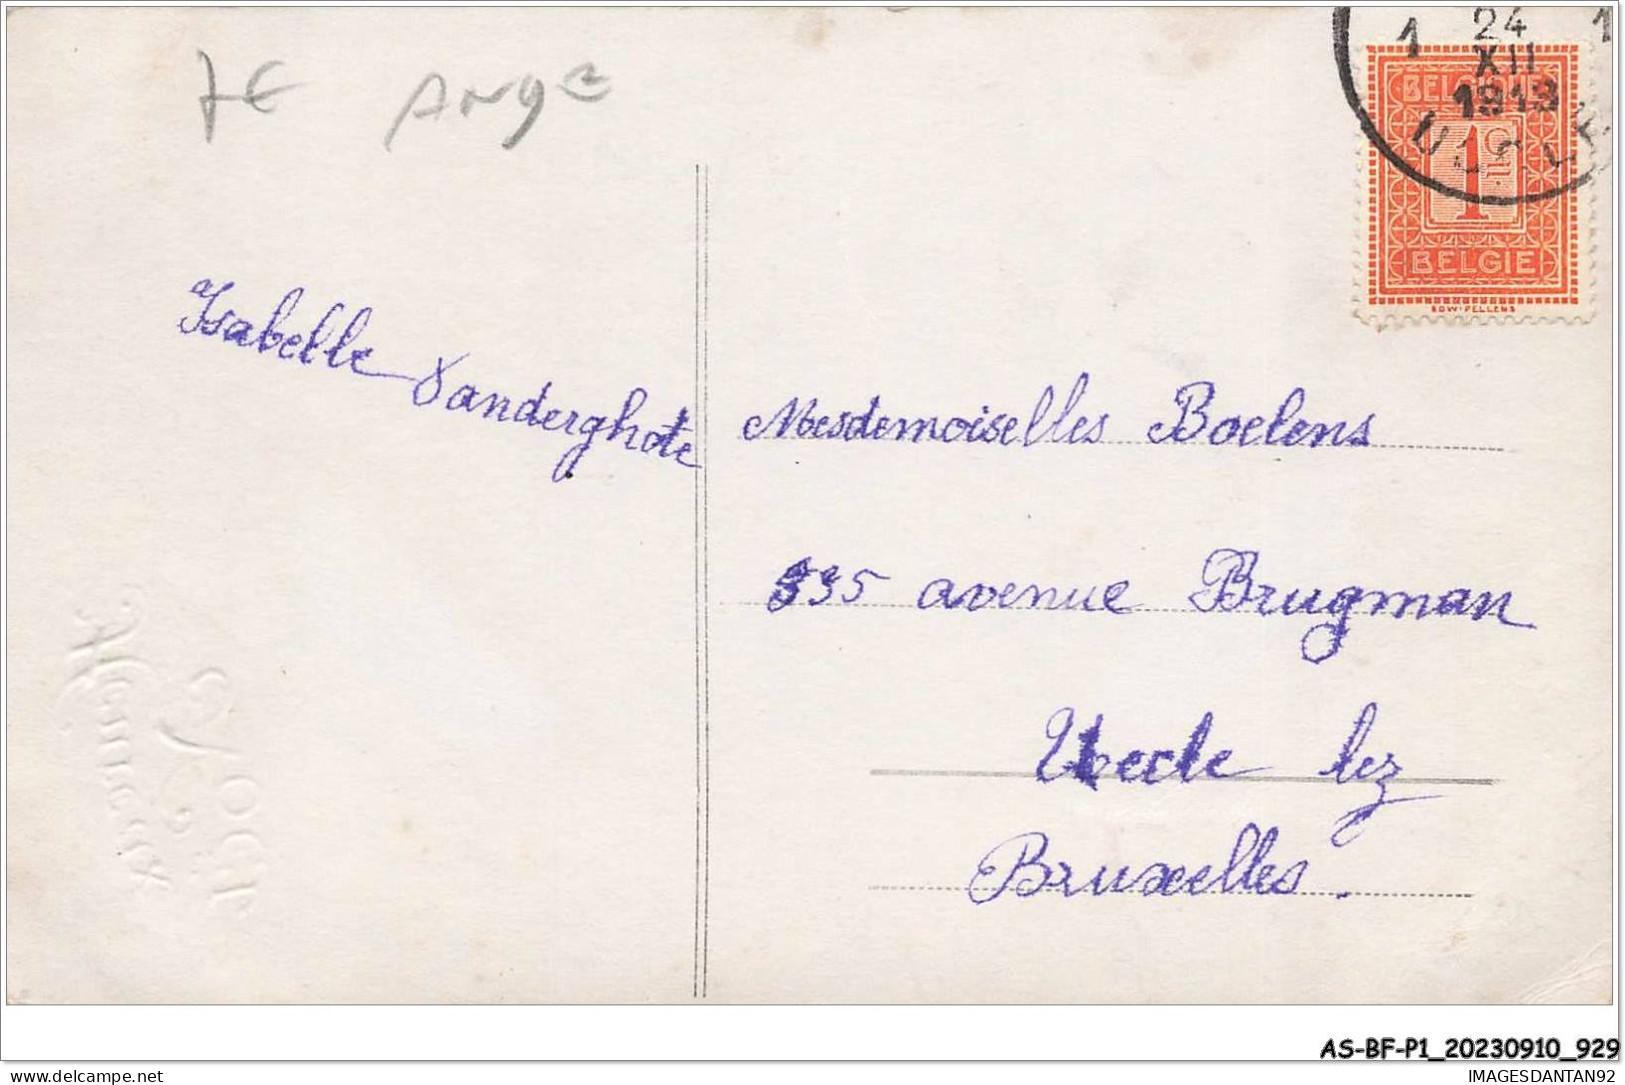 7€ Ange
1 24 1
XII
1913
UCCLE
BELGIQUE
1 C
BELGIË
EDW·PELLENS
Isabelle Vanderghote
Mesdemoiselles Boelens
335 avenue Brugman
Uccle lez
Bruxelles.
AS-BF-P1_20230910_929
delcampe.net
IMAGESDANTAN92